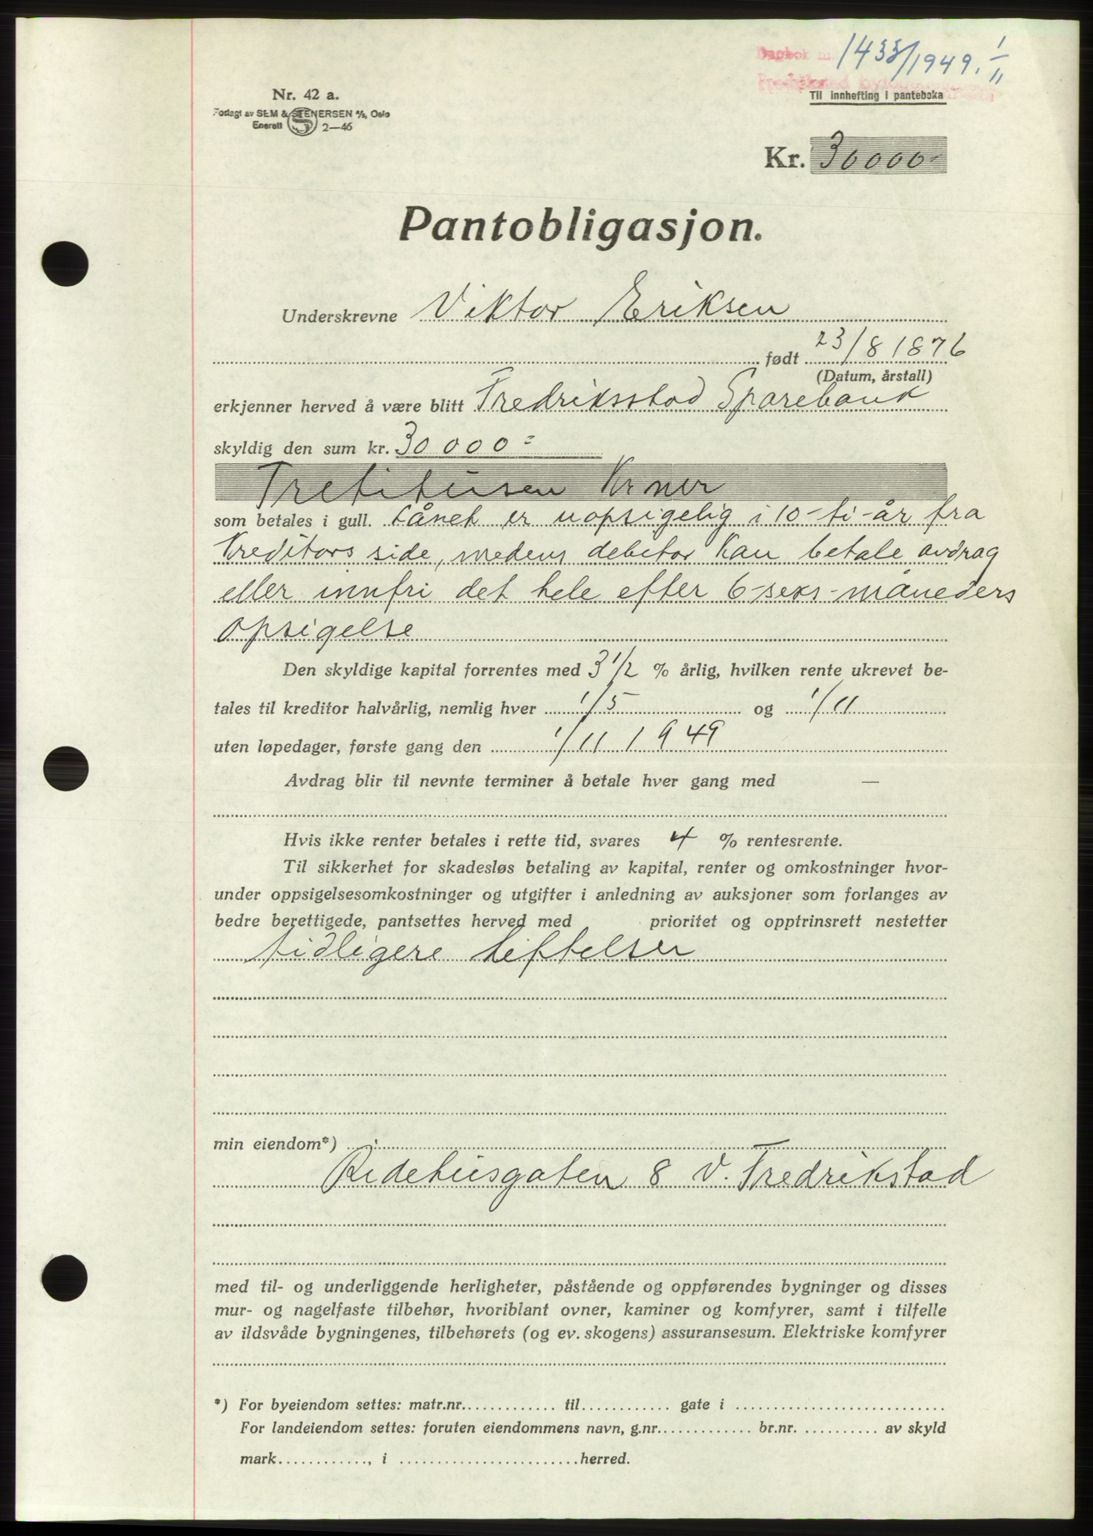 Dagbok nr. 1433/1949. 1/11
Fredrikstad
Til innhefting i panteboka
Nr. 42 a.
Forlagt av SEM & STENERSEN A/S, Oslo
Enerett 2—46
Kr. 30000-
Pantobligasjon.
Underskrevne Viktor Eriksen
født 23/8 1876
(Datum, årstall)
erkjenner herved å være blitt Fredriksstad Sparebank
skyldig den sum kr. 30000=
Tretitusen Kroner
som betales i gull. Lånet er uopsigelig i 10-ti-år fra
Kreditors side, medens debitor kan betale avdrag
eller innfri det hele efter 6-seks-måneders
opsigelse
Den skyldige kapital forrentes med 3 1/2 % årlig, hvilken rente ukrevet be-
tales til kreditor halvårlig, nemlig hver 1/5 og 1/11
uten løpedager, første gang den 1/11 1949
Avdrag blir til nevnte terminer å betale hver gang med —
Hvis ikke renter betales i rette tid, svares 4 % rentesrente.
Til sikkerhet for skadesløs betaling av kapital, renter og omkostninger hvor-
under oppsigelsesomkostninger og utgifter i anledning av auksjoner som forlanges av
bedre berettigede, pantsettes herved med prioritet og opptrinsrett nestetter
tidligere heftelser
min eiendom*)
Ridehusgaten 8 V. Fredrikstad
med til- og underliggende herligheter, påstående og oppførendes bygninger og disses
mur- og nagelfaste tilbehør, hvoriblant ovner, kaminer og komfyrer, samt i tilfelle
av ildsvåde bygningenes, tilbehørets (og ev. skogens) assuransesum. Elektriske komfyrer
*) For byeiendom settes: matr.nr............ til............ gate i ............................
For landeiendom settes: foruten eiendommens navn, g.nr............. br.nr. .......... av skyld
mark............, i ........................herred.